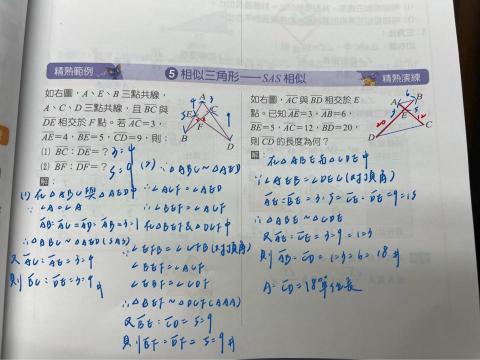 精熟範例
5 相似三角形——SAS 相似
精熟演練
如右圖，A、E、B 三點共線，
A、C、D 三點共線，且 BC 與
DE 相交於 F 點。若 AC=3，
AE=4，BE=5，CD=9，則：
(1) BC：DE=？3:4
(2) BF：DF=？5:9
解：
(1) 在△ABC與△AED中
∵∠A=∠A
AB:AC=AD:AE=3:1
∴△ABC~△AED(SAS)
又AC:AE=3:4
則BC:DE=3:4
(2) ∵△ABC~△AED
∴∠ACF=∠AED
∴∠BEF=∠DCF
在△BEF與△DCF中
∵∠EFB=∠CFD(對頂角)
∠BEF=∠DCF
∴△BEF~△DCF(AAA)
又BE:CD=5:9
則BF:DF=5:9
如右圖，AC 與 BD 相交於 E
點。已知 AE=3，AB=6，
BE=5，AC=12，BD=20，
則 CD 的長度為何？
解：
在△ABE與△CDE中
∵∠AEB=∠DEC(對頂角)
AE:BE=3:5=CE:DE=9:15
∴△ABE~△CDE
又AE:CE=3:9=1:3
則AB:CD=1:3=6:18
A:CD=18單位長